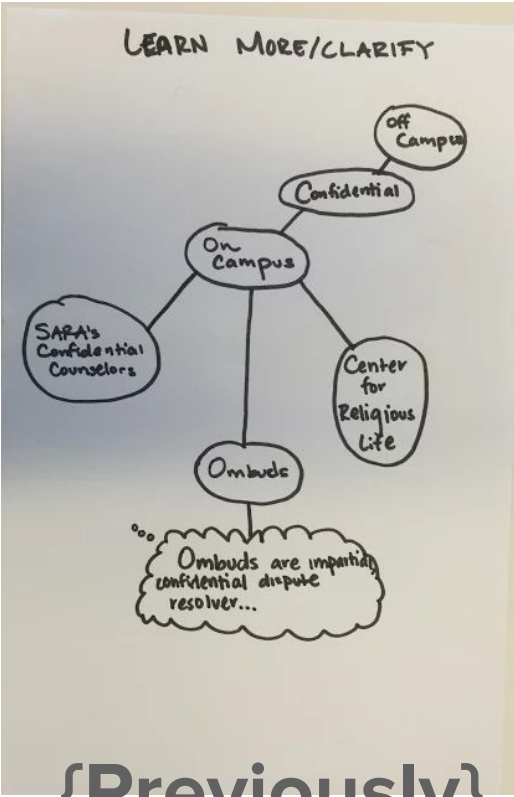 LEARN MORE/CLARIFY
Off
Campus
Confidential
On
Campus
SARA's
Confidential
Counselors
Center
for
Religious
Life
Ombuds
Ombuds are impartial,
confidential dispute
resolver...
{Previously}